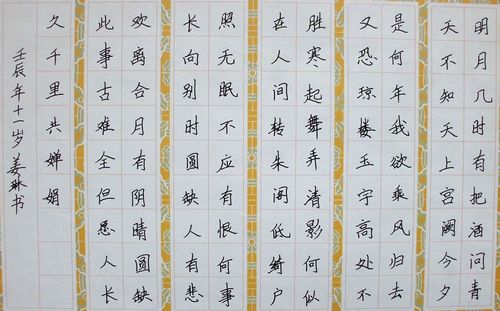 明月几时有把酒问青
天不知天上宫阙今夕
是何年我欲乘风归去
又恐琼楼玉宇高处不
胜寒起舞弄清影何似
在人间转朱阁低绮户
照无眠不应有恨何事
长向别时圆缺人有悲
欢离合月有阴晴圆缺
此事古难全但愿人长
久千里共婵娟
壬辰年十一岁姜琳书